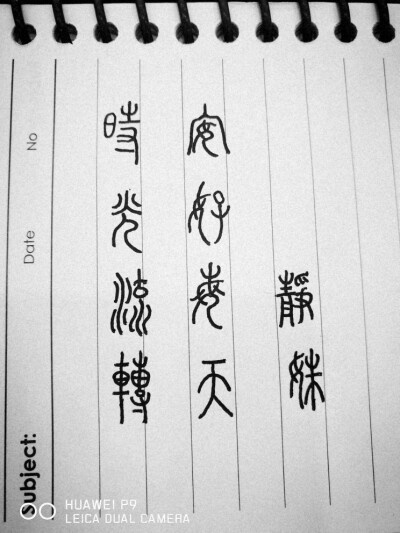 時光流轉
安好每天
靜妹
No
Date
Subject:
HUAWEI P9
LEICA DUAL CAMERA